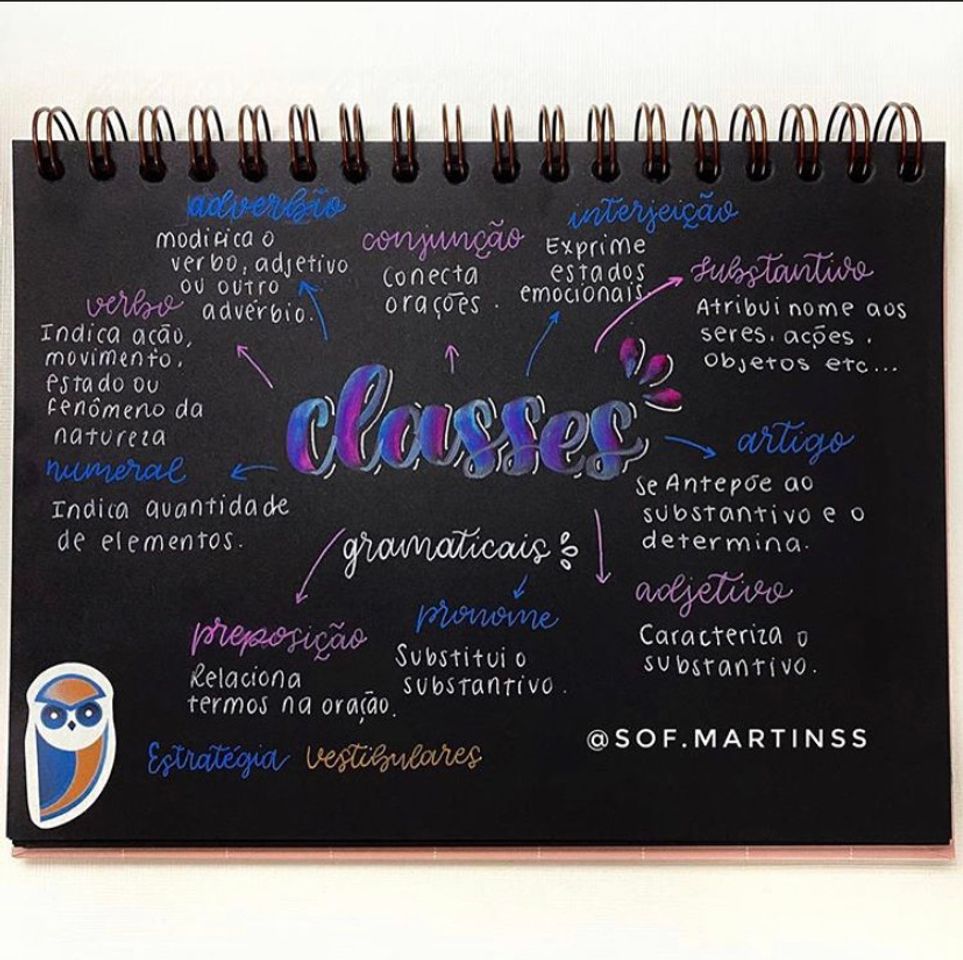 adverbio
modifica o
verbo, adjetivo
ou outro
advérbio.
conjunção
Conecta
orações.
interjeição
Exprime
estados
emocionais
substantivo
Atribui nome aos
seres, ações,
objetos etc...
verbo
Indica ação,
movimento,
estado ou
fenômeno da
natureza
classes
gramaticais
artigo
Se Antepõe ao
substantivo e o
determina.
numeral
Indica quantidade
de elementos.
adjetivo
Caracteriza o
substantivo.
pronome
Substitui o
substantivo.
preposição
Relaciona
termos na oração.
Estratégia Vestibulares
@SOF.MARTINSS